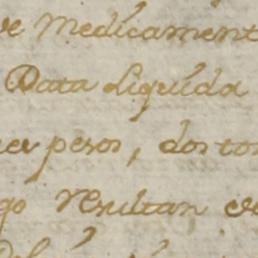 de Medicament
Data liquida
pesos, dos tom
go resultan